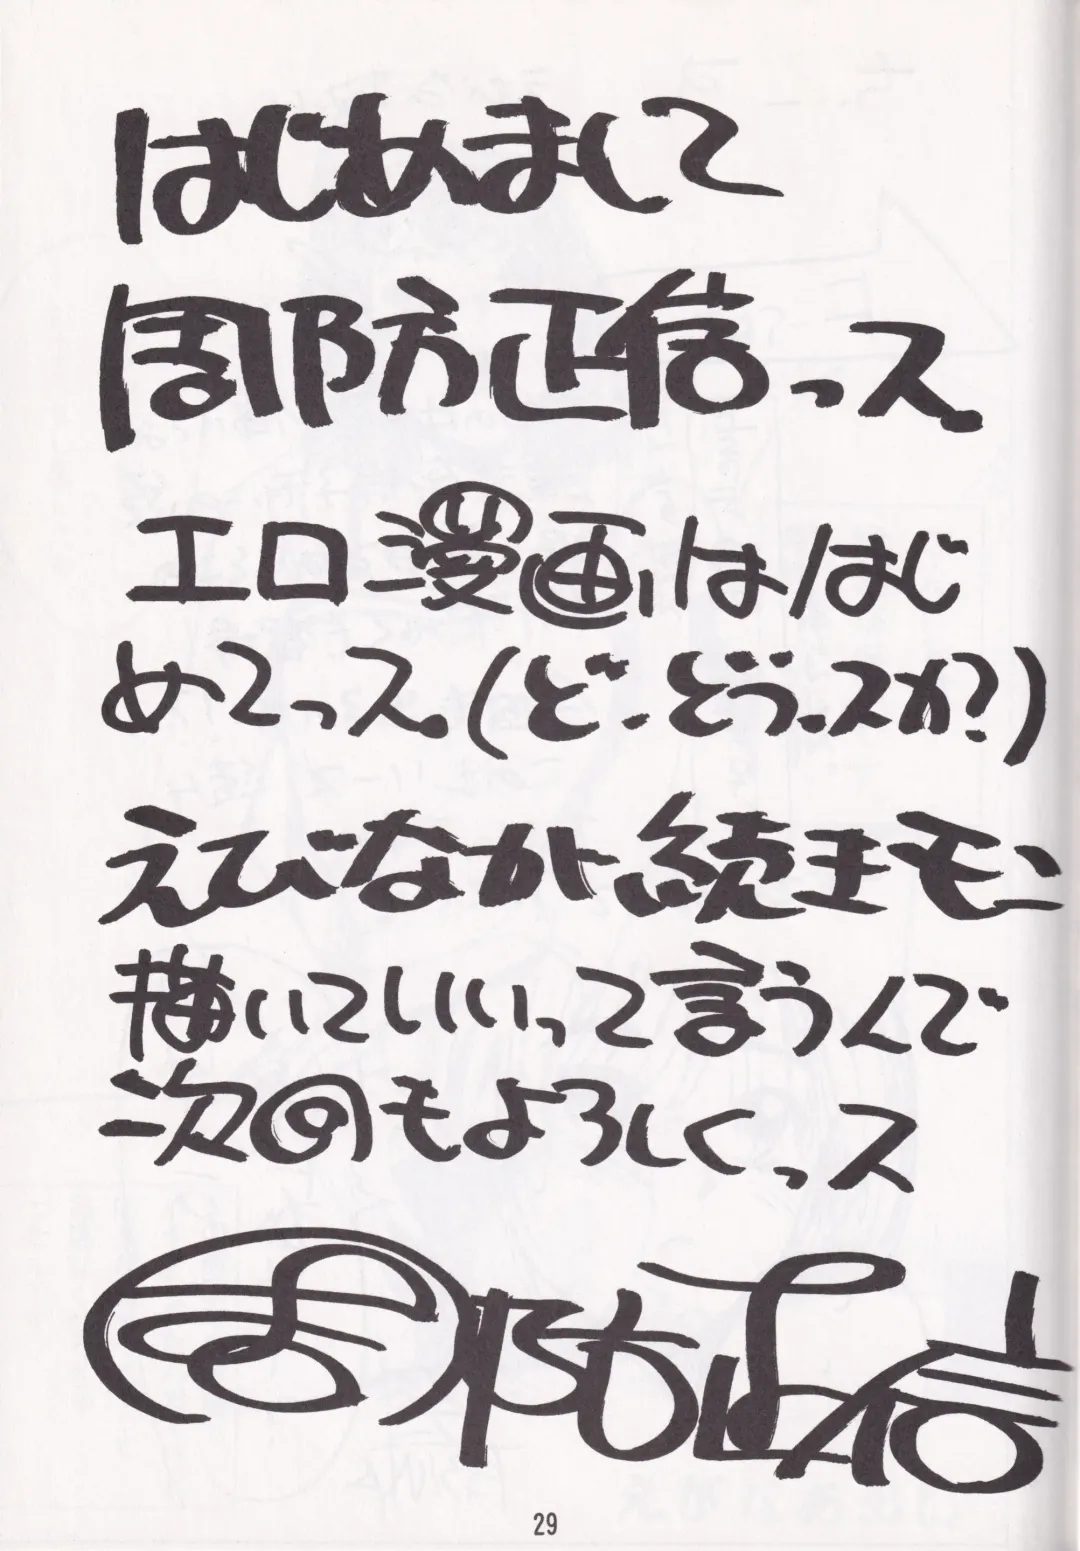 はじめまして
周防正信っス。
エロ漫画ははじ
めてっス。(ど、どうっスか?)
えびなから続きモン
描いていいって言うんで
次回もよろしくっス
周防正信
29